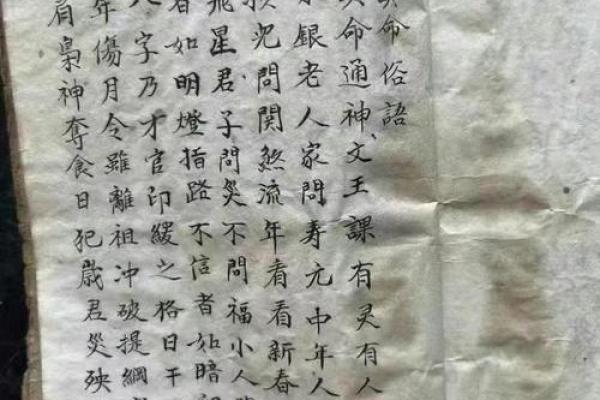 命俗語
命通神文王課有灵有人
銀老人家問寿元中年人
兒問関煞流年看看新春
飛星君子問災不問福小人
者如明燈指路不信者如暗
字乃才官印綬之格日干
年傷月令雖離祖冲破提綱
看梟神奪食日犯歲君災殃